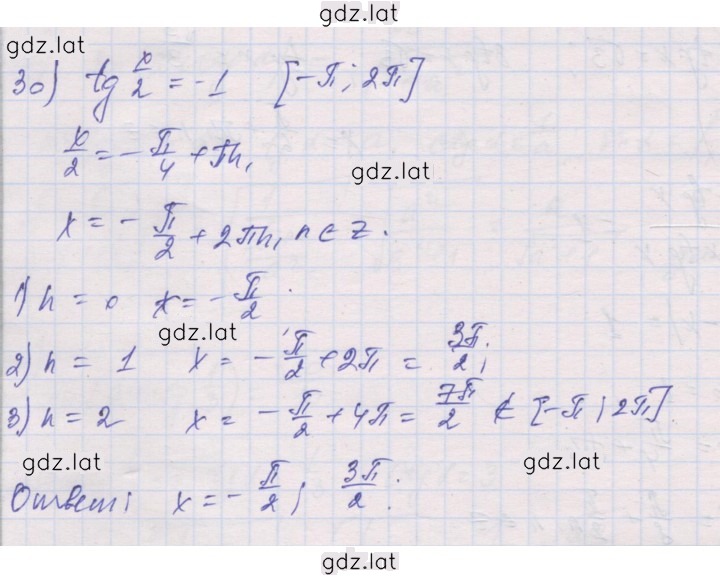 gdz.lat
gdz.lat
30) tg x/2 = -1 [-π; 2π]
x/2 = -π/4 + πn,
gdz.lat
x = -π/2 + 2πn, n ∈ Z.
1) n = 0 x = -π/2
gdz.lat
2) n = 1 x = -π/2 + 2π = 3π/2;
3) n = 2 x = -π/2 + 4π = 7π/2 ∉ [-π; 2π]
gdz.lat gdz.lat
Ответ: x = -π/2; 3π/2.
gdz.lat